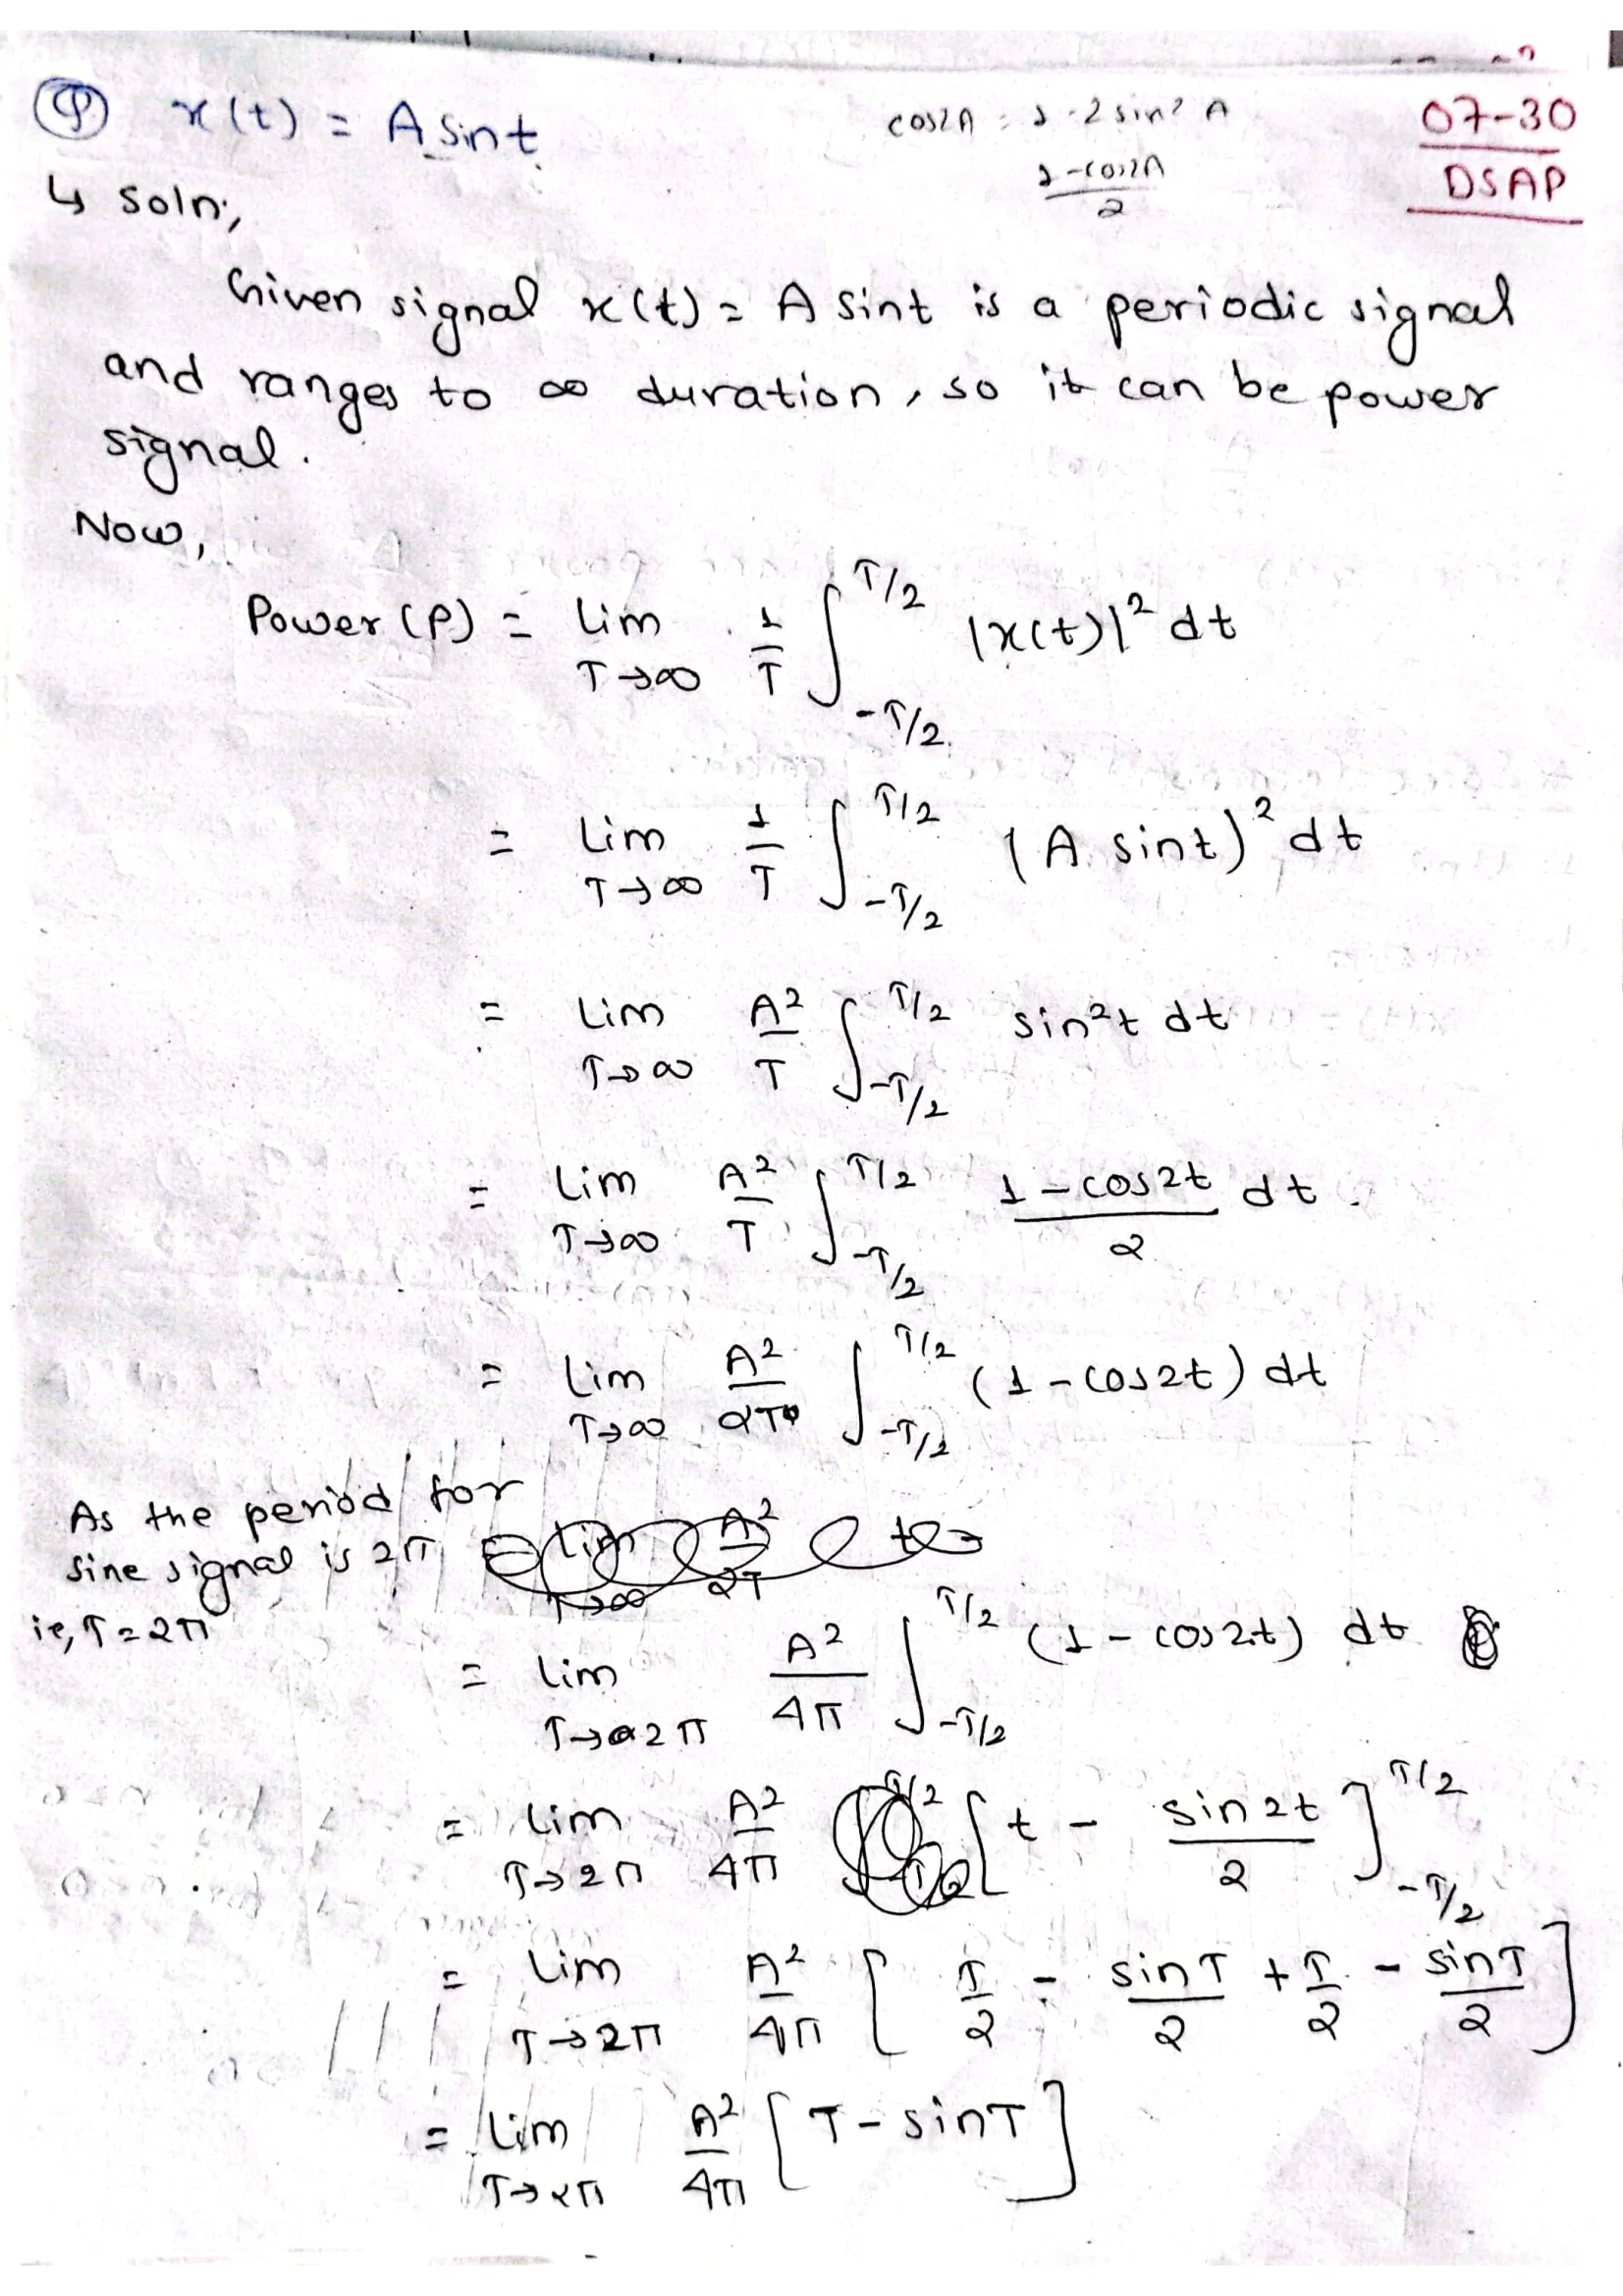 Q x(t) = A sint
cos2A = 1 - 2 sin² A
1-cos2A / 2
07-30
DSAP
↳ Soln;,
Given signal x(t) = A sint is a periodic signal
and ranges to ∞ duration, so it can be power
signal.
Now,
Power (P) = Lim T→∞ 1/T ∫_{-T/2}^{T/2} |x(t)|² dt
= Lim T→∞ 1/T ∫_{-T/2}^{T/2} (A sint)² dt
= Lim T→∞ A²/T ∫_{-T/2}^{T/2} sin²t dt
= Lim T→∞ A²/T ∫_{-T/2}^{T/2} (1 - cos2t)/2 dt.
= Lim T→∞ A²/2T ∫_{-T/2}^{T/2} (1 - cos2t) dt
As the period for
sine signal is 2π
ie, T = 2π
= Lim T→2π A²/4π ∫_{-T/2}^{T/2} (1 - cos2t) dt
= Lim T→2π A²/4π [t - sin2t/2]_{-T/2}^{T/2}
= Lim T→2π A²/4π [T/2 - sinT/2 + T/2 - sinT/2]
= Lim T→2π A²/4π [T - sinT]